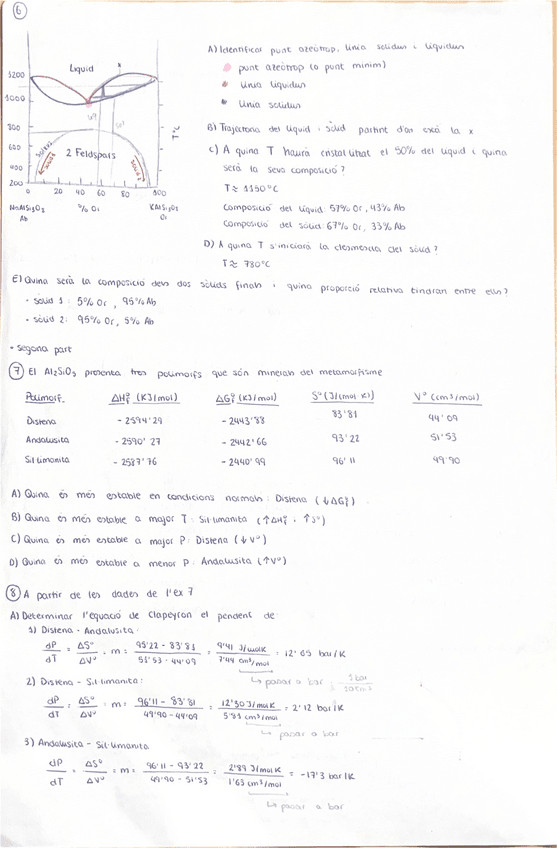 6
A) Identificar punt azeòtrop, línia solidus i liquidus
punt azeòtrop (o punt mínim)
línia liquidus
línia solidus
Liquid
1200
1000
800
600
400
200
2 Feldspars
solvus
solvus
T°C
0 20 40 60 80 100
NaAlSi3O8 % Or KAlSi3O8
Ab Or
B) Trajectòria del líquid i sòlid partint d'on està la x
C) A quina T haurà cristal·litzat el 50% del líquid i quina
serà la seva composició?
T ≈ 1150°C
Composició del líquid: 57% Or, 43% Ab
Composició del sòlid: 67% Or, 33% Ab
D) A quina T s'iniciarà la desmescla del sòlid?
T ≈ 780°C
E) Quina serà la composició dels dos sòlids finals i quina proporció relativa tindran entre ells?
• sòlid 1: 5% Or, 95% Ab
• sòlid 2: 95% Or, 5% Ab
• Segona part
7 El Al2SiO5 presenta tres polimorfs que són minerals del metamorfisme
Polimorf. ΔH°f (KJ/mol) ΔG°f (KJ/mol) S° (J/(mol·K)) V° (cm3/mol)
Distena -2594'29 -2443'88 83'81 44'09
Andalusita -2590'27 -2442'66 93'22 51'53
Sil·limanita -2587'76 -2440'99 96'11 49'90
A) Quina és més estable en condicions normals: Distena (↓ΔG°f)
B) Quina és més estable a major T: Sil·limanita (↑ΔH°f i ↑S°)
C) Quina és més estable a major P: Distena (↓V°)
D) Quina és més estable a menor P: Andalusita (↑V°)
8 A partir de les dades de l'ex 7
A) Determinar l'equació de Clapeyron el pendent de:
1) Distena - Andalusita:
dP/dT = ΔS°/ΔV° = m = 93'22 - 83'81 / 51'53 - 44'09 = 9'41 J/molK / 7'44 cm3/mol = 12'65 bar/K
↳ passar a bar
2) Distena - Sil·limanita:
dP/dT = ΔS°/ΔV° = m = 96'11 - 83'81 / 49'90 - 44'09 = 12'30 J/molK / 5'81 cm3/mol = 2'12 bar/K
↳ passar a bar
3) Andalusita - Sil·limanita
dP/dT = ΔS°/ΔV° = m = 96'11 - 93'22 / 49'90 - 51'53 = 2'89 J/molK / 1'63 cm3/mol = -17'3 bar/K
↳ passar a bar